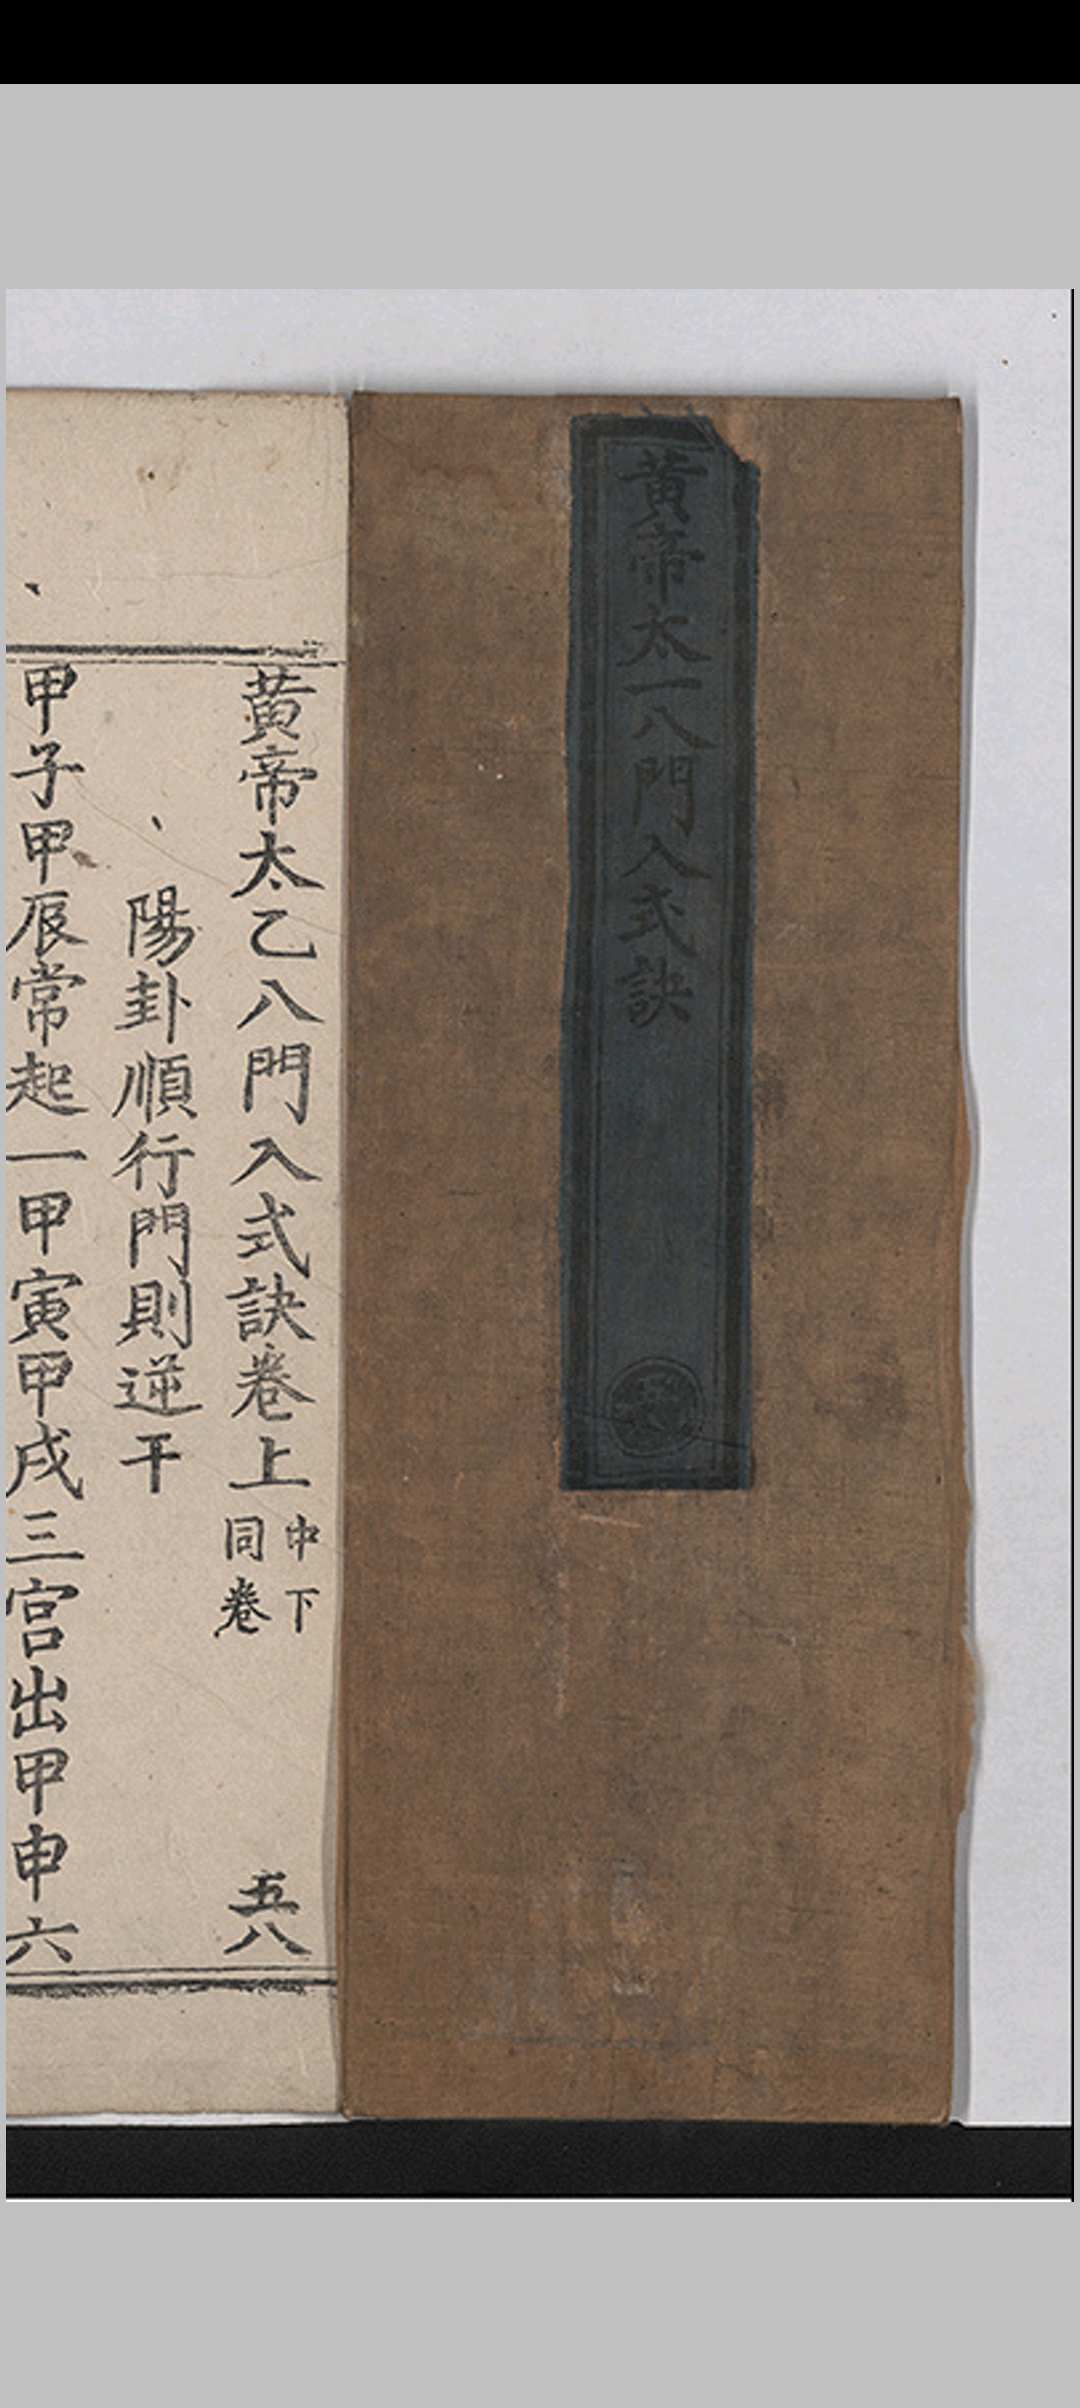 黃帝太一八門入式訣
黃帝太乙八門入式訣卷上
中下
同卷
五八
陽卦順行門則逆干
甲子甲辰常起一甲寅甲戌三宮出甲申六